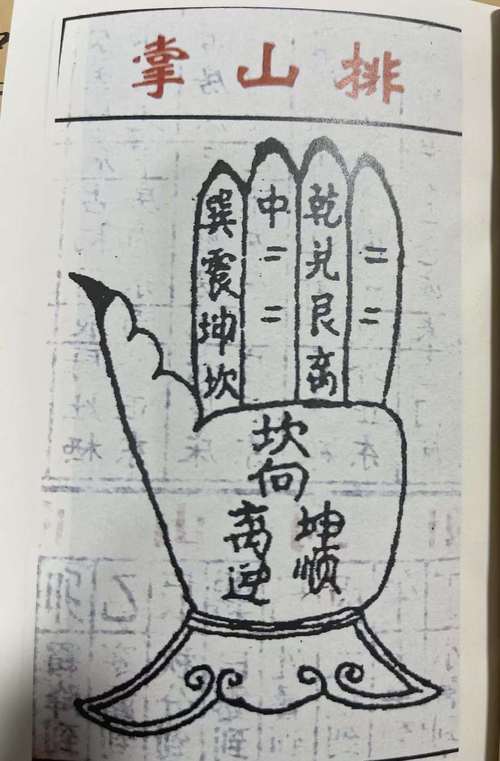 排山掌
巽震坤坎
中二二
乾兑艮离
二二
坎向
离逆
坤顺